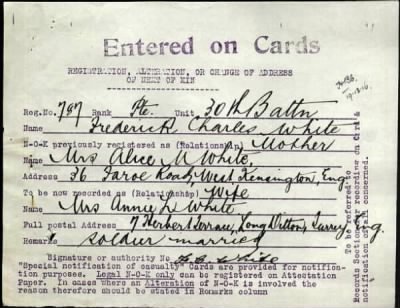 Entered on Cards
REGISTRATION, ALTERATION, OR CHANGE OF ADDRESS
OF NEXT OF KIN
Reg.No. 787 Rank Pte. Unit. 30th Battn
Name Frederick Charles White
N-O-K previously registered as (Relationship) Mother
Name Mrs Alice M White.
Address 36 Faroe Road, West Kensington, Eng
To be now recorded as (Relationship) Wife
Name Mrs Annie L White
Full postal Address 7 Herbert Terrace, Long Ditton, Surrey, Eng.
Remarks soldier married
Signature or authority No
"Special notification of casualty" Cards are provided for notifi-
cation purposes. Legal N-O-K only can be registered on Attestation
Paper. In cases where an Alteration of N-O-K is involved the
reason therefore should be stated in Remarks column
to be referred to
Records Section, recording on Card &
notification of all concerned.